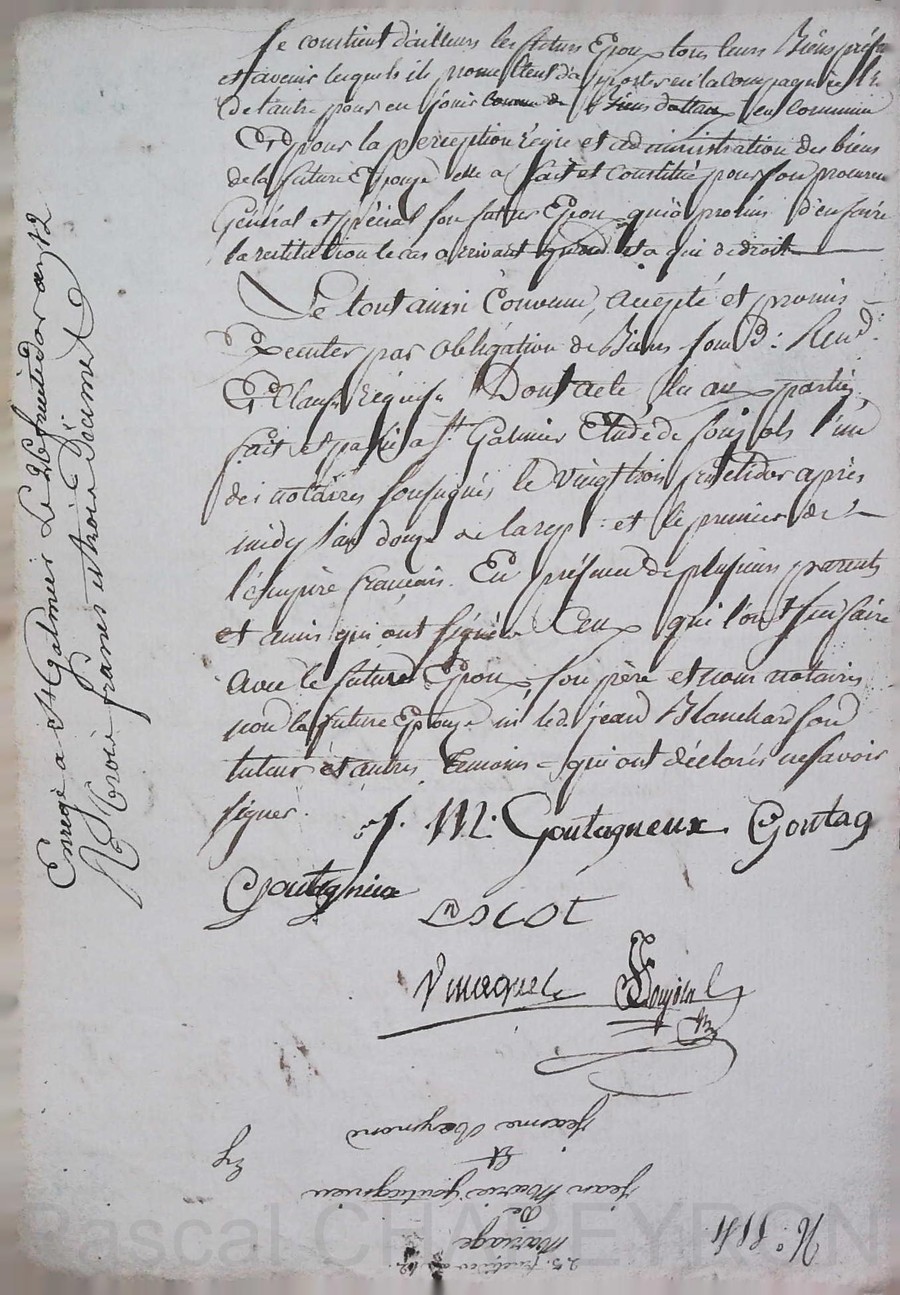 Se constient d'ailleurs les futurs Epoux tous leurs Biens prés.
et avenir lesquels ils promettent d'apporter en la compagnie l'un
de l'autre pour en jouir comme de Biens dotaux en commun
Et pour la perception régie et administration des biens
de la future Epouze elle a fait et constitué pour son procureur
Général et spécial son futur Epoux qui a promis d'en faire
la restitution le cas arrivant quand et a qui de droit
Le tout ainsi Convenu, accepté et promis
Executer par obligation de Biens soum. d: Rend.
Et Clauses requises Dont acte lu aux parties
fait et passé a St. Galmier Etude de Soujols l'un
des notaires soussignés le Vingt trois fructidor après
midy l'an douze de la rep: et le premier de
l'émpire français. En présence de plusieurs parents
et amis qui ont signé Ceux qui l'ont su faire
avec le future Epoux, son père et nous notaires
non la future Epouze ni led. jean Blanchard son
tuteur et autres temoins qui ont déclarés ne savoir
signer.
J. M. Goutagneux Goutag
Goutagnieux
Escot
Soujols
Enregé a St Galmier Le 26 fructidor an 12
Rç trois francs et trois Décimes
N.° 884
23. fructidor an 12.
Mariage
De
jean Marie goutagnieu
Et
jeanne Reynard
Pascal CHAPEYRON